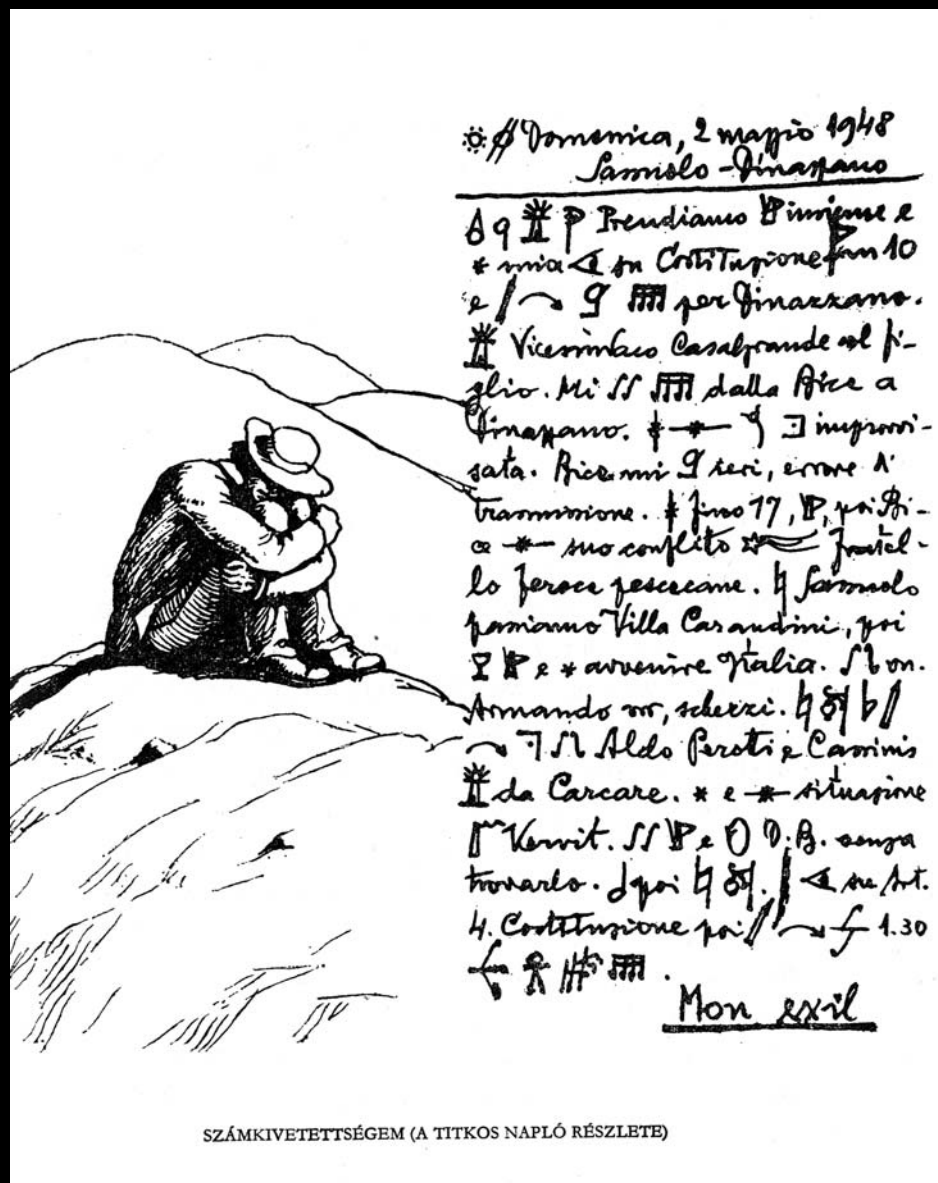 Domenica, 2 maggio 1948
Sassuolo - Dinazzano
Prendiamo insieme e
mia su Costituzione fin 10
e per Dinazzano.
Vicesindaco Casalgrande col fi-
glio. Mi dalla Bice a
Dinazzano. improvvi-
sata. Bice mi ieri, errore di
trasmissione. fino 17, poi Bi-
ce suo conflitto fratel-
lo feroce pescecane. Sassuolo
passiamo Villa Carandini, poi
e avvenire Italia. on.
Armando scherzi.
Aldo Perotti e Cassinis
da Carcare. e situazione
e D.B. senza
trovarlo. poi su Art.
4. Costituzione poi 1.30
Mon exil
SZÁMKIVETETTSÉGEM (A TITKOS NAPLÓ RÉSZLETE)